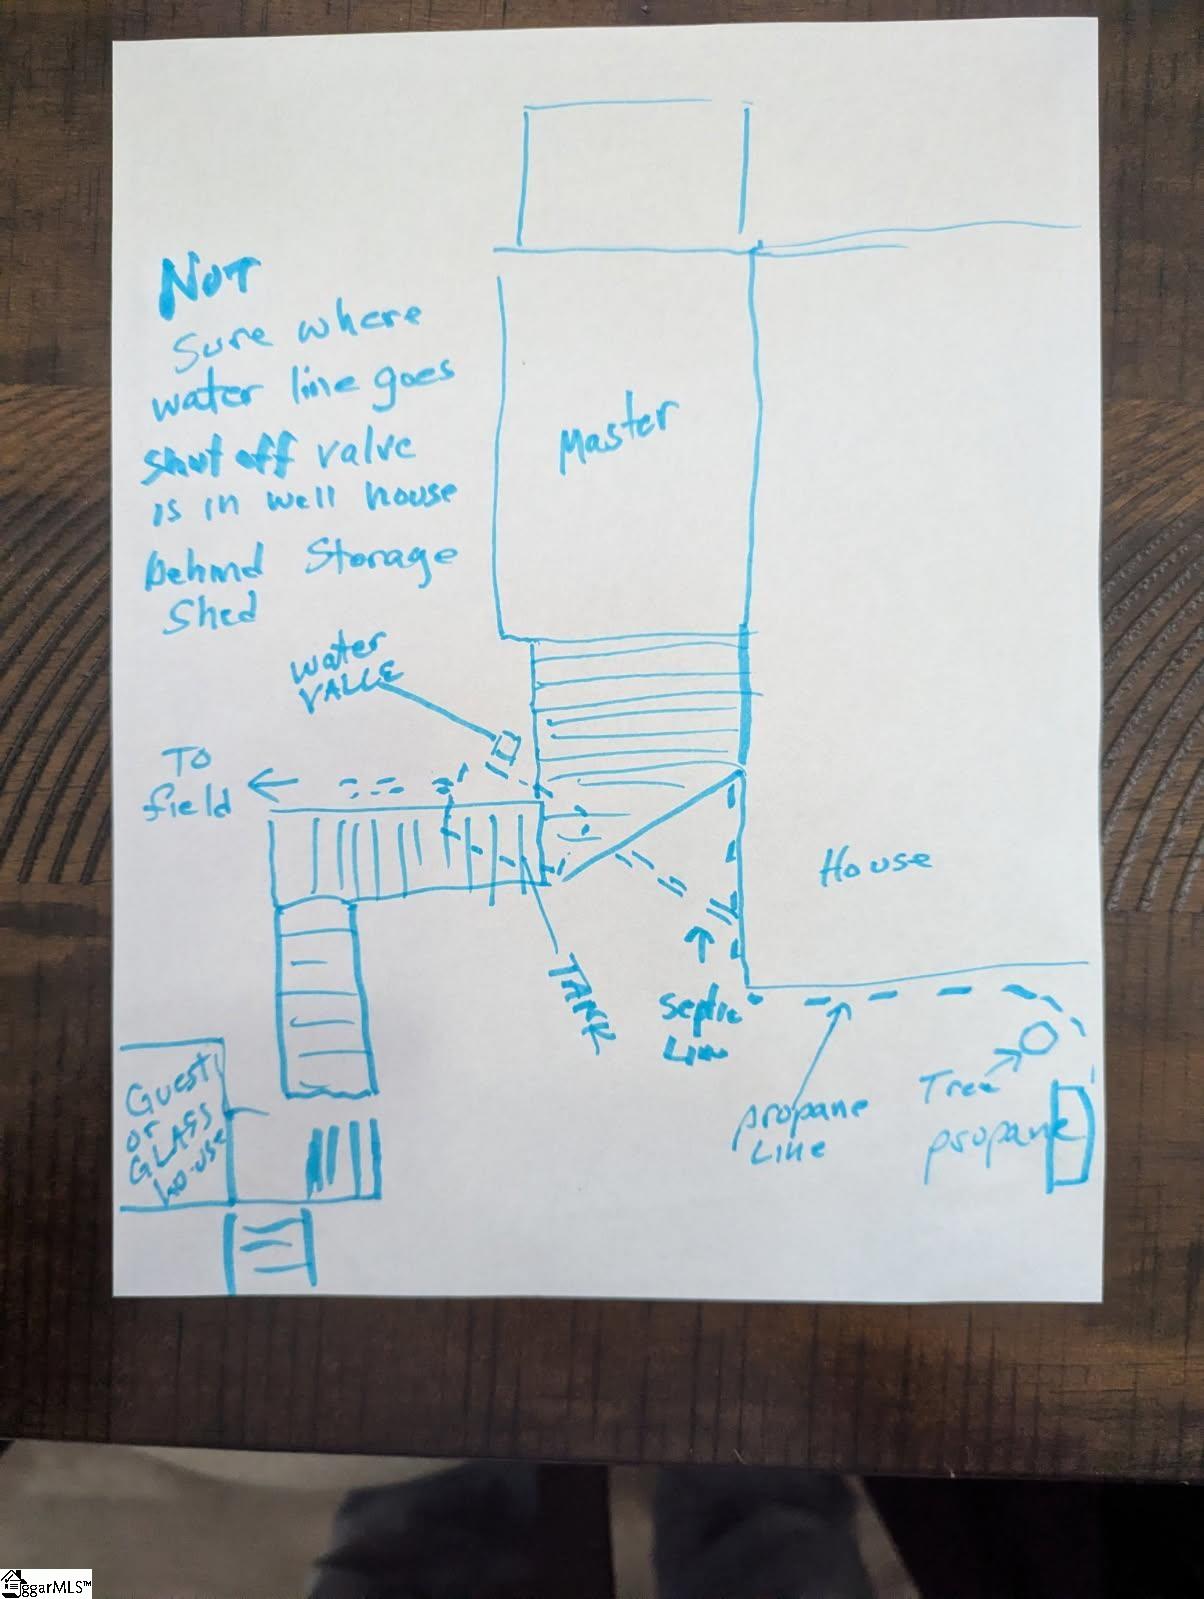 NOT
Sure where
water line goes
shut off valve
is in well house
behind Storage
Shed
Master
water
VALLE
To
field
House
TANK
septic
Line
propane
Line
Tree
propane
Guest
or
GLASS
house
ggarMLS™